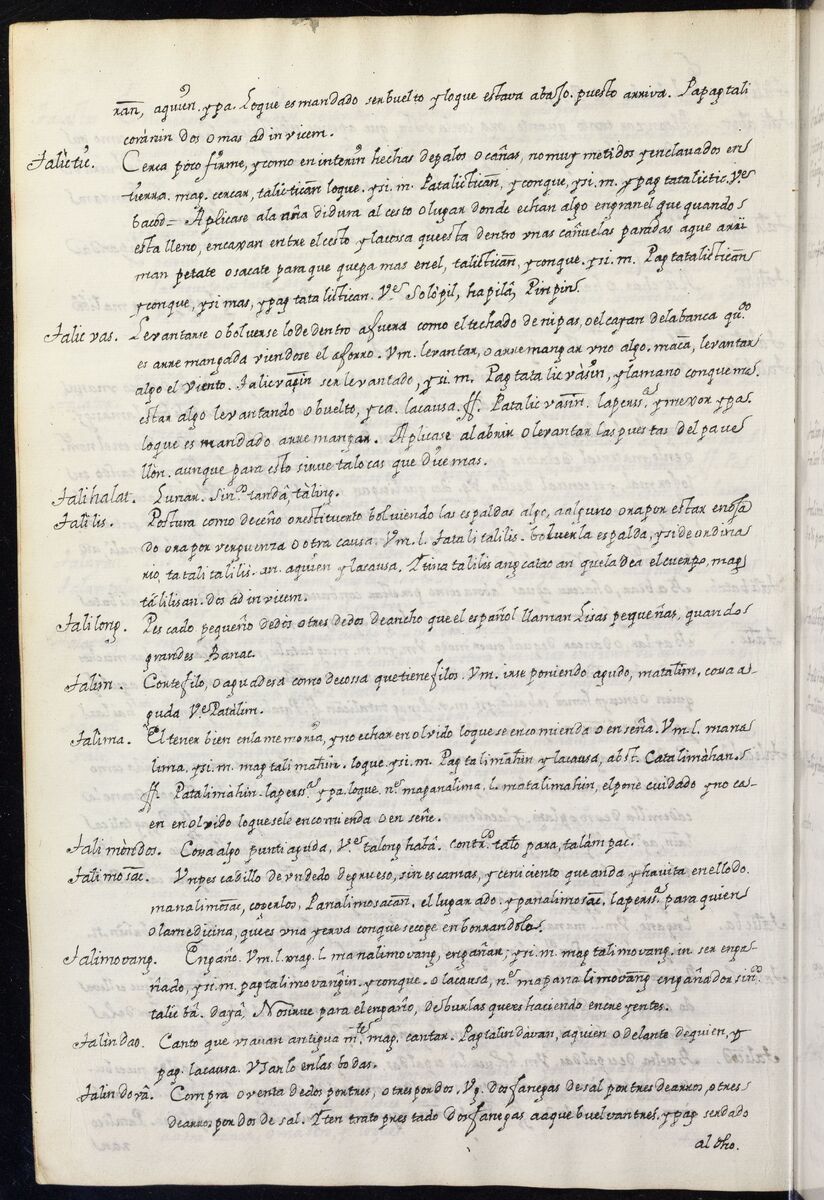 ran, aquien. ypa. Loque es mandado ser buelto yloque estava abaxo. puesto arriva. Papagtali
coránin dos o mas ad in vicem.
Talictic. Cerca poco firme, y como en interin hechas de palos o cañas, no muy metidos y enclavados en
tierra. mag. cercar, talictican loque. ysi. m. Patalictican, y conque, ysi. m. ypag tatalictic. Ve
bacod= Aplicase ala añadidura al cesto o lugar donde echan algo en granel que quando
esta lleno, encaxan entre el cesto y lacossa que esta dentro unas cañuelas paradas aque arri
man petate o sacate para que quepa mas en el, talictican, y conque. ysi. m. Pagtatalictican
y conque, ysi mas, ypag tatalictican. Ve Solòpil, hapilâ, Piripir.
Talicvas. Levantarse o bolverse lo de dentro afuera como el techado de nipas, o el cayan dela banca qdo
es arremangada viendose el aforro. Vm. levantar, o arremangar uno algo. maca, levantar
algo el viento. Talicvasin ser levantado, ysi. m. Pagtatalicvàsin, y lamano conque me.
estar algo levantando o buelto, y ca. lacausa. ff. Patalicvasin. laperssa y mexor ypa.
loque es mandado arremangar. Aplicase al abrir o levantar las puestas del pave
llòn. aunque para esto sirve talocas que dixe mas.
Talihalat. Lunar. Sino tandâ, tàling.
Talilis. Postura como de ceño o restituerto bolviendo las espaldas algo, a alguno ora por estar enoja
do ora por verguenza o otra causa. Vm. l. tatalitalilis. bolver la espalda, y si de ordina
rio, tatalitalilis. an. aquien y lacausa. Ytinatalilis ang catao an que ladea el cuerpo, mag
tàlilisan. dos ad in vicem.
Talilong. Pescado pequeño de dos o tres dedos de ancho que el español llaman Lisas pequeñas, quando
grandes Banac.
Talim. Cortefilo, o agudesa como de cossa que tiene filos. Vm. irse poniendo agudo, matalim. cosa a-
guda Ve Patalim.
Talima. El tener bien en la memoria, y no echar en olvido loque se encomienda o enseña. Vm. l. mana
lima, ysi. m. magtalimahin. loque. ysi. m. Pagtalimahin y lacausa, abst. Catalimàhan.
ff. Patalimàhin. laperssa ypa. loque. ne mapanalima. l. matalimahin, el pone cuidado y no ca-
en en olvido loque sele encomienda o enseñe.
Talimòndos. Cosa algo puntiaguda, Ve talong habâ. contro talo para, talàmpac.
Talimosac. Un pescadillo de un dedo de grueso, sin escamas, y ceniciento que anda y havita en el lodo.
manalimosac, cogerlos, Panalimosacan. el lugar ado. y panalimosac. laperssa para quien
o la medicina, que es una yerva conque se coge en borrandola.
Talimovang. Engaño. Vm. l. mag. l. manalimovang, engañar; ysi. m. magtalimovang. in. ser enga-
ñado, ysi. m. pagtalimovangin. y conque. o lacausa, ne mapanalimovang engañador sino
talictâ. dayâ, No sirve para el engaño, de burlas que es haciendo entre yentes.
Talindao. Canto que usavan antiguamte mag. cantar. Pagtalindavan, aquien o delante de quien, y
pag. lacausa. Usarlo en las bodas.
Talindovâ. Compra o venta de dos por tres, o tres por dos. Vg. dos fanegas de sal por tres de arros, o tres
de arros por dos de sal. Yten trato prestado dos fanegas aque buelvan tres. ypag ser dado
al otro.